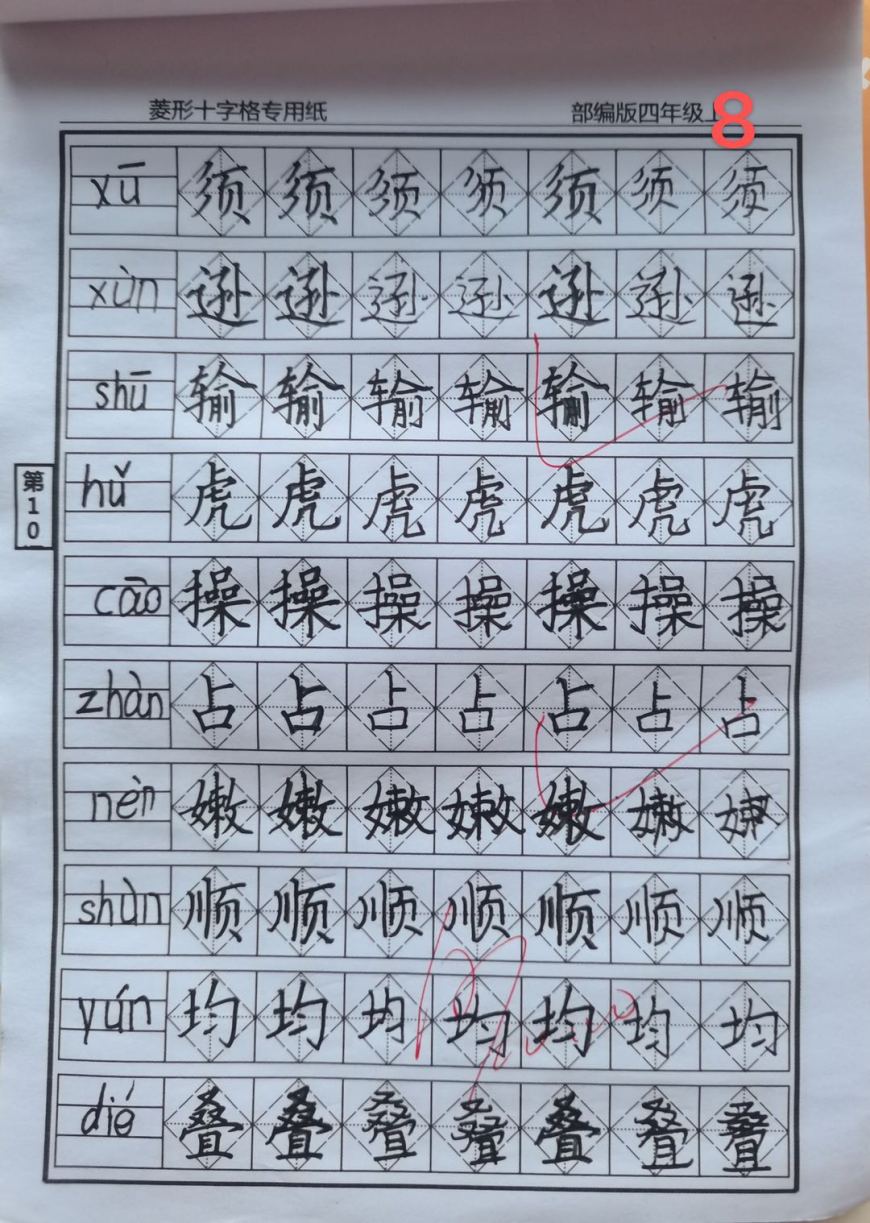 菱形十字格专用纸 部编版四年级上
8
xū 须 须 须 须 须 须 须
xùn 逊 逊 逊 逊 逊 逊 逊
shū 输 输 输 输 输 输 输
第10
hǔ 虎 虎 虎 虎 虎 虎 虎
cāo 操 操 操 操 操 操 操
zhàn 占 占 占 占 占 占 占
nèn 嫩 嫩 嫩 嫩 嫩 嫩 嫩
shùn 顺 顺 顺 顺 顺 顺 顺
yún 均 均 均 均 均 均 均
dié 叠 叠 叠 叠 叠 叠 叠